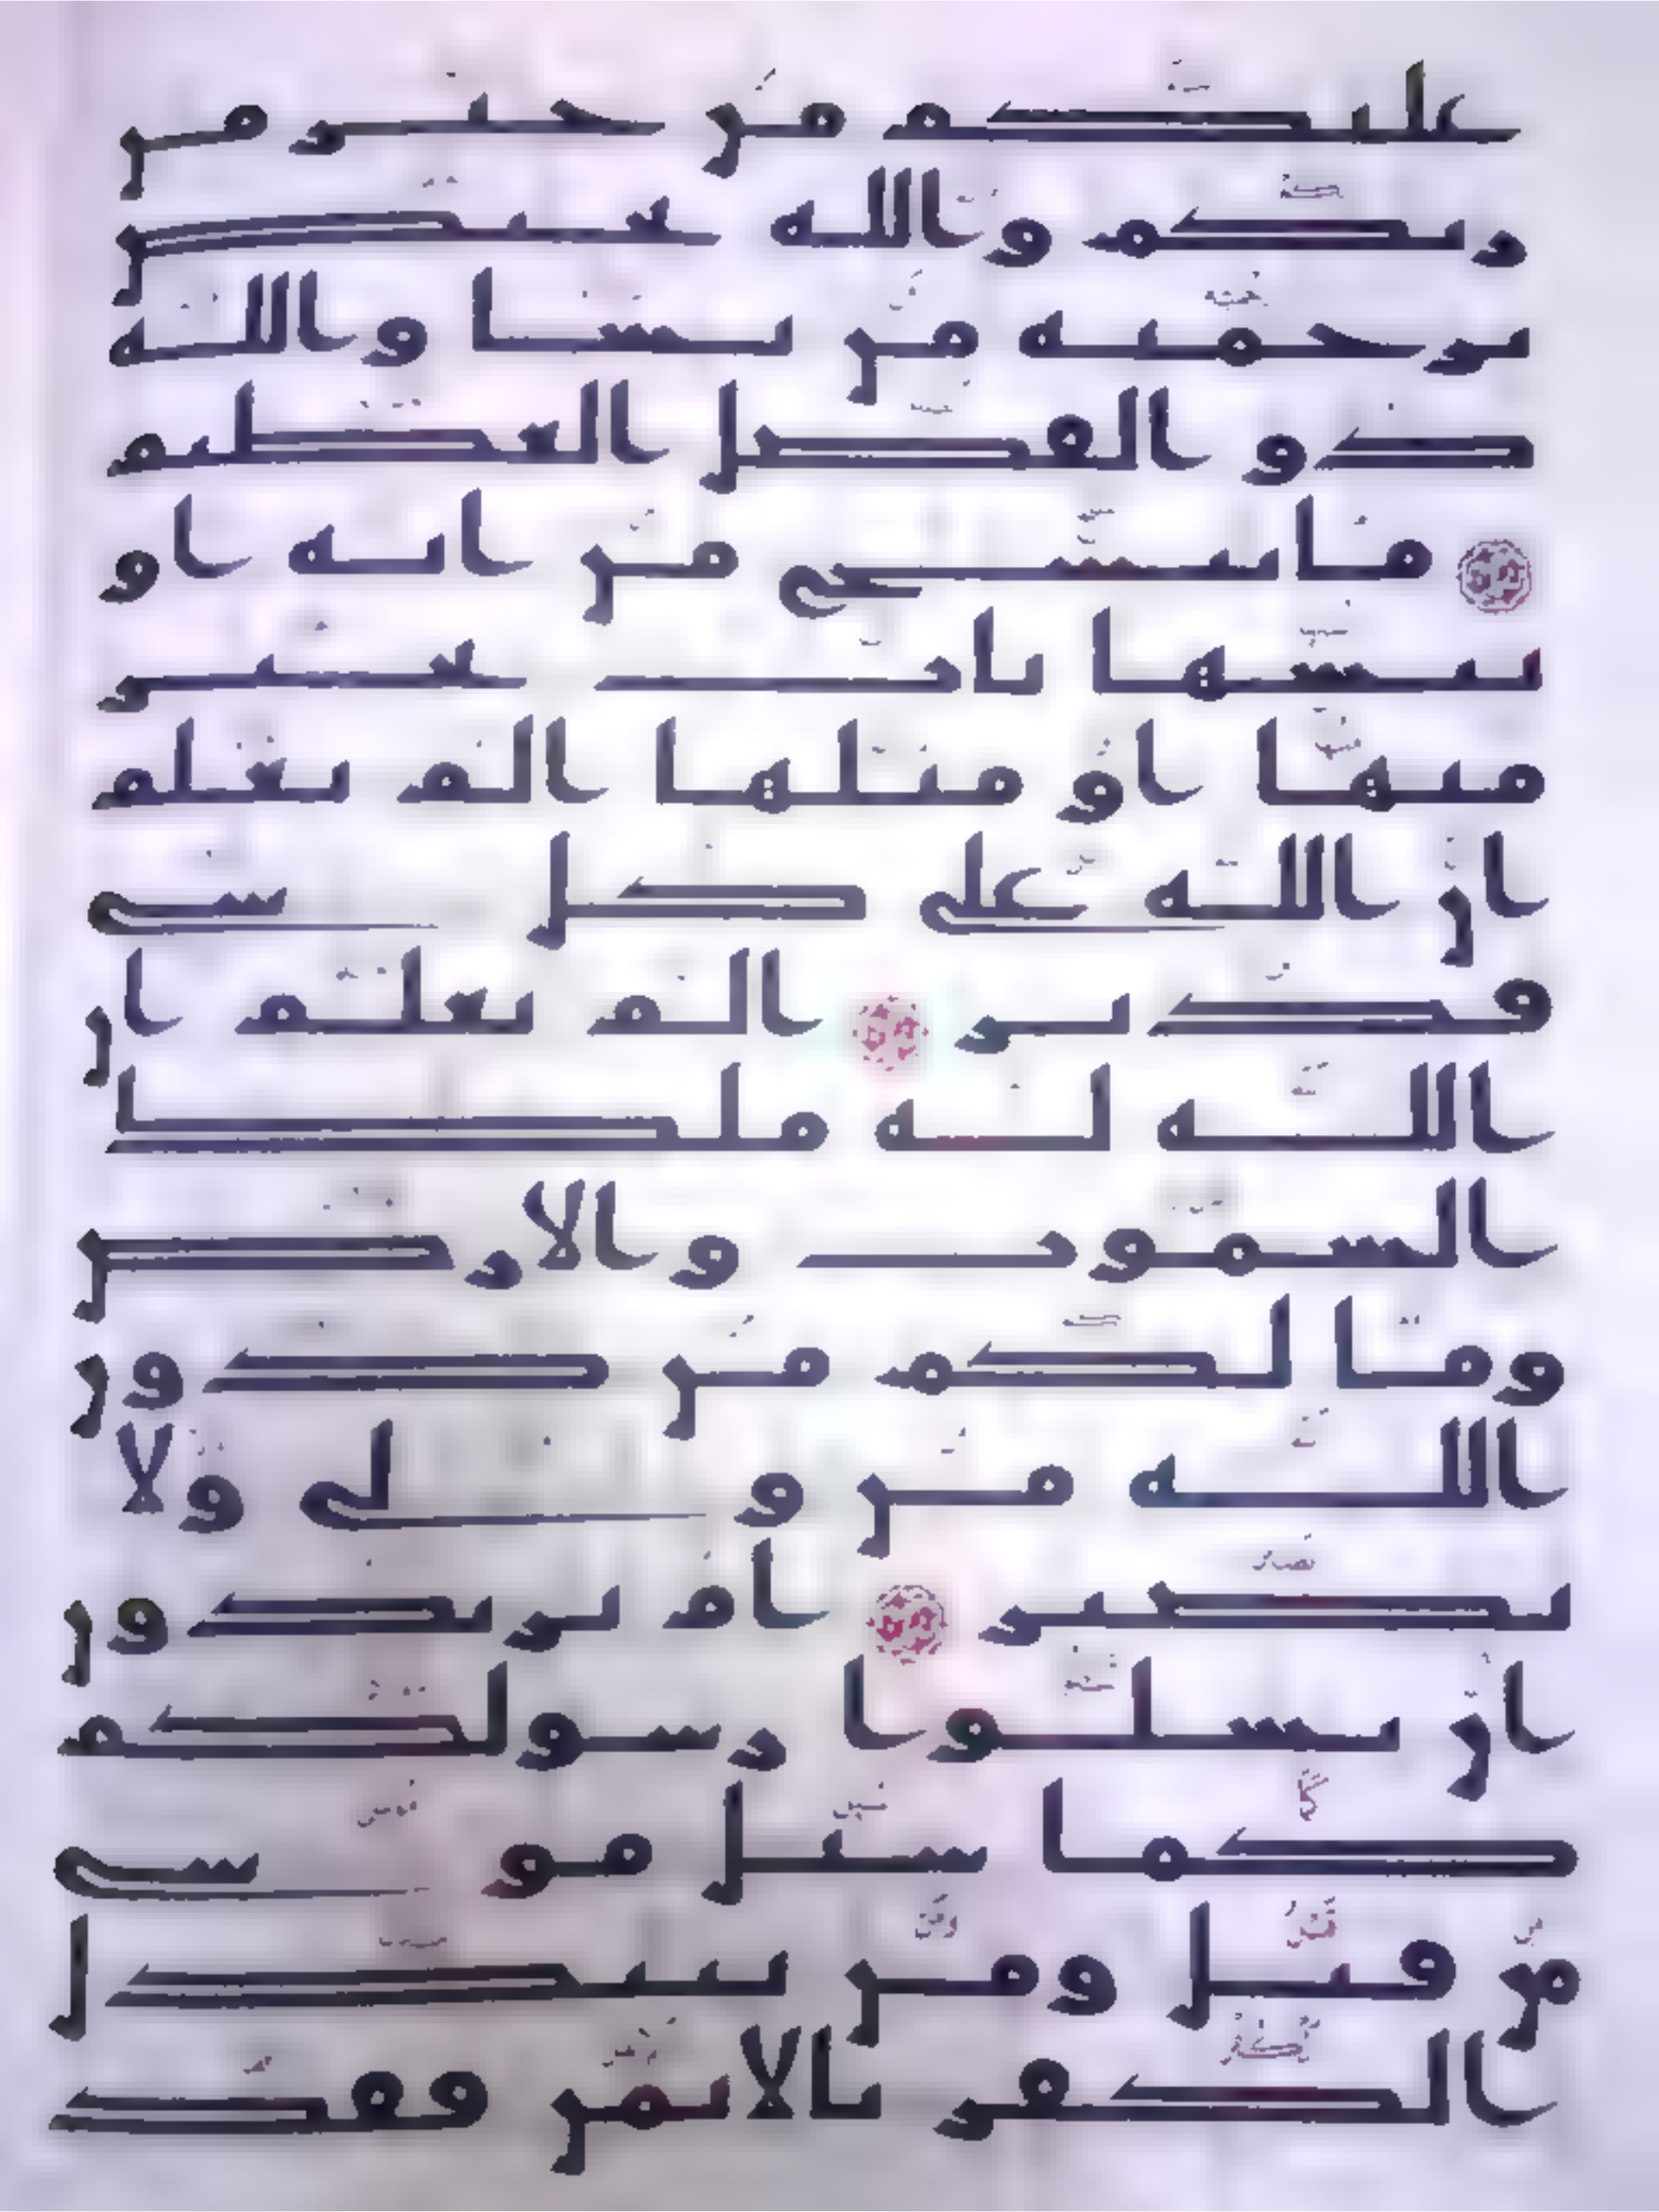 عليكم من خير من
ربكم والله يختص
برحمته من يشا والله
ذو الفضل العظيم
ما ننسخ من اية او
ننسها نات بخير
منها او مثلها الم تعلم
ان الله على كل شى
قدير الم تعلم ان
الله له ملك
السموت والارض
وما لكم من دون
الله من ولى ولا
نصير ام تريدون
ان تسلوا رسولكم
كما سئل موسى
من قبل ومن يتبدل
الكفر بالايمن فقد